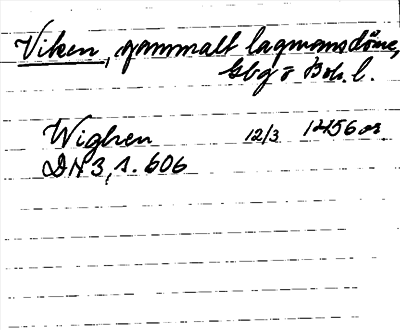 Viken, gammalt lagmansdöme,
Gbg o Boh. l.
Wighen 12/3 1456 or
DN 3, s. 606